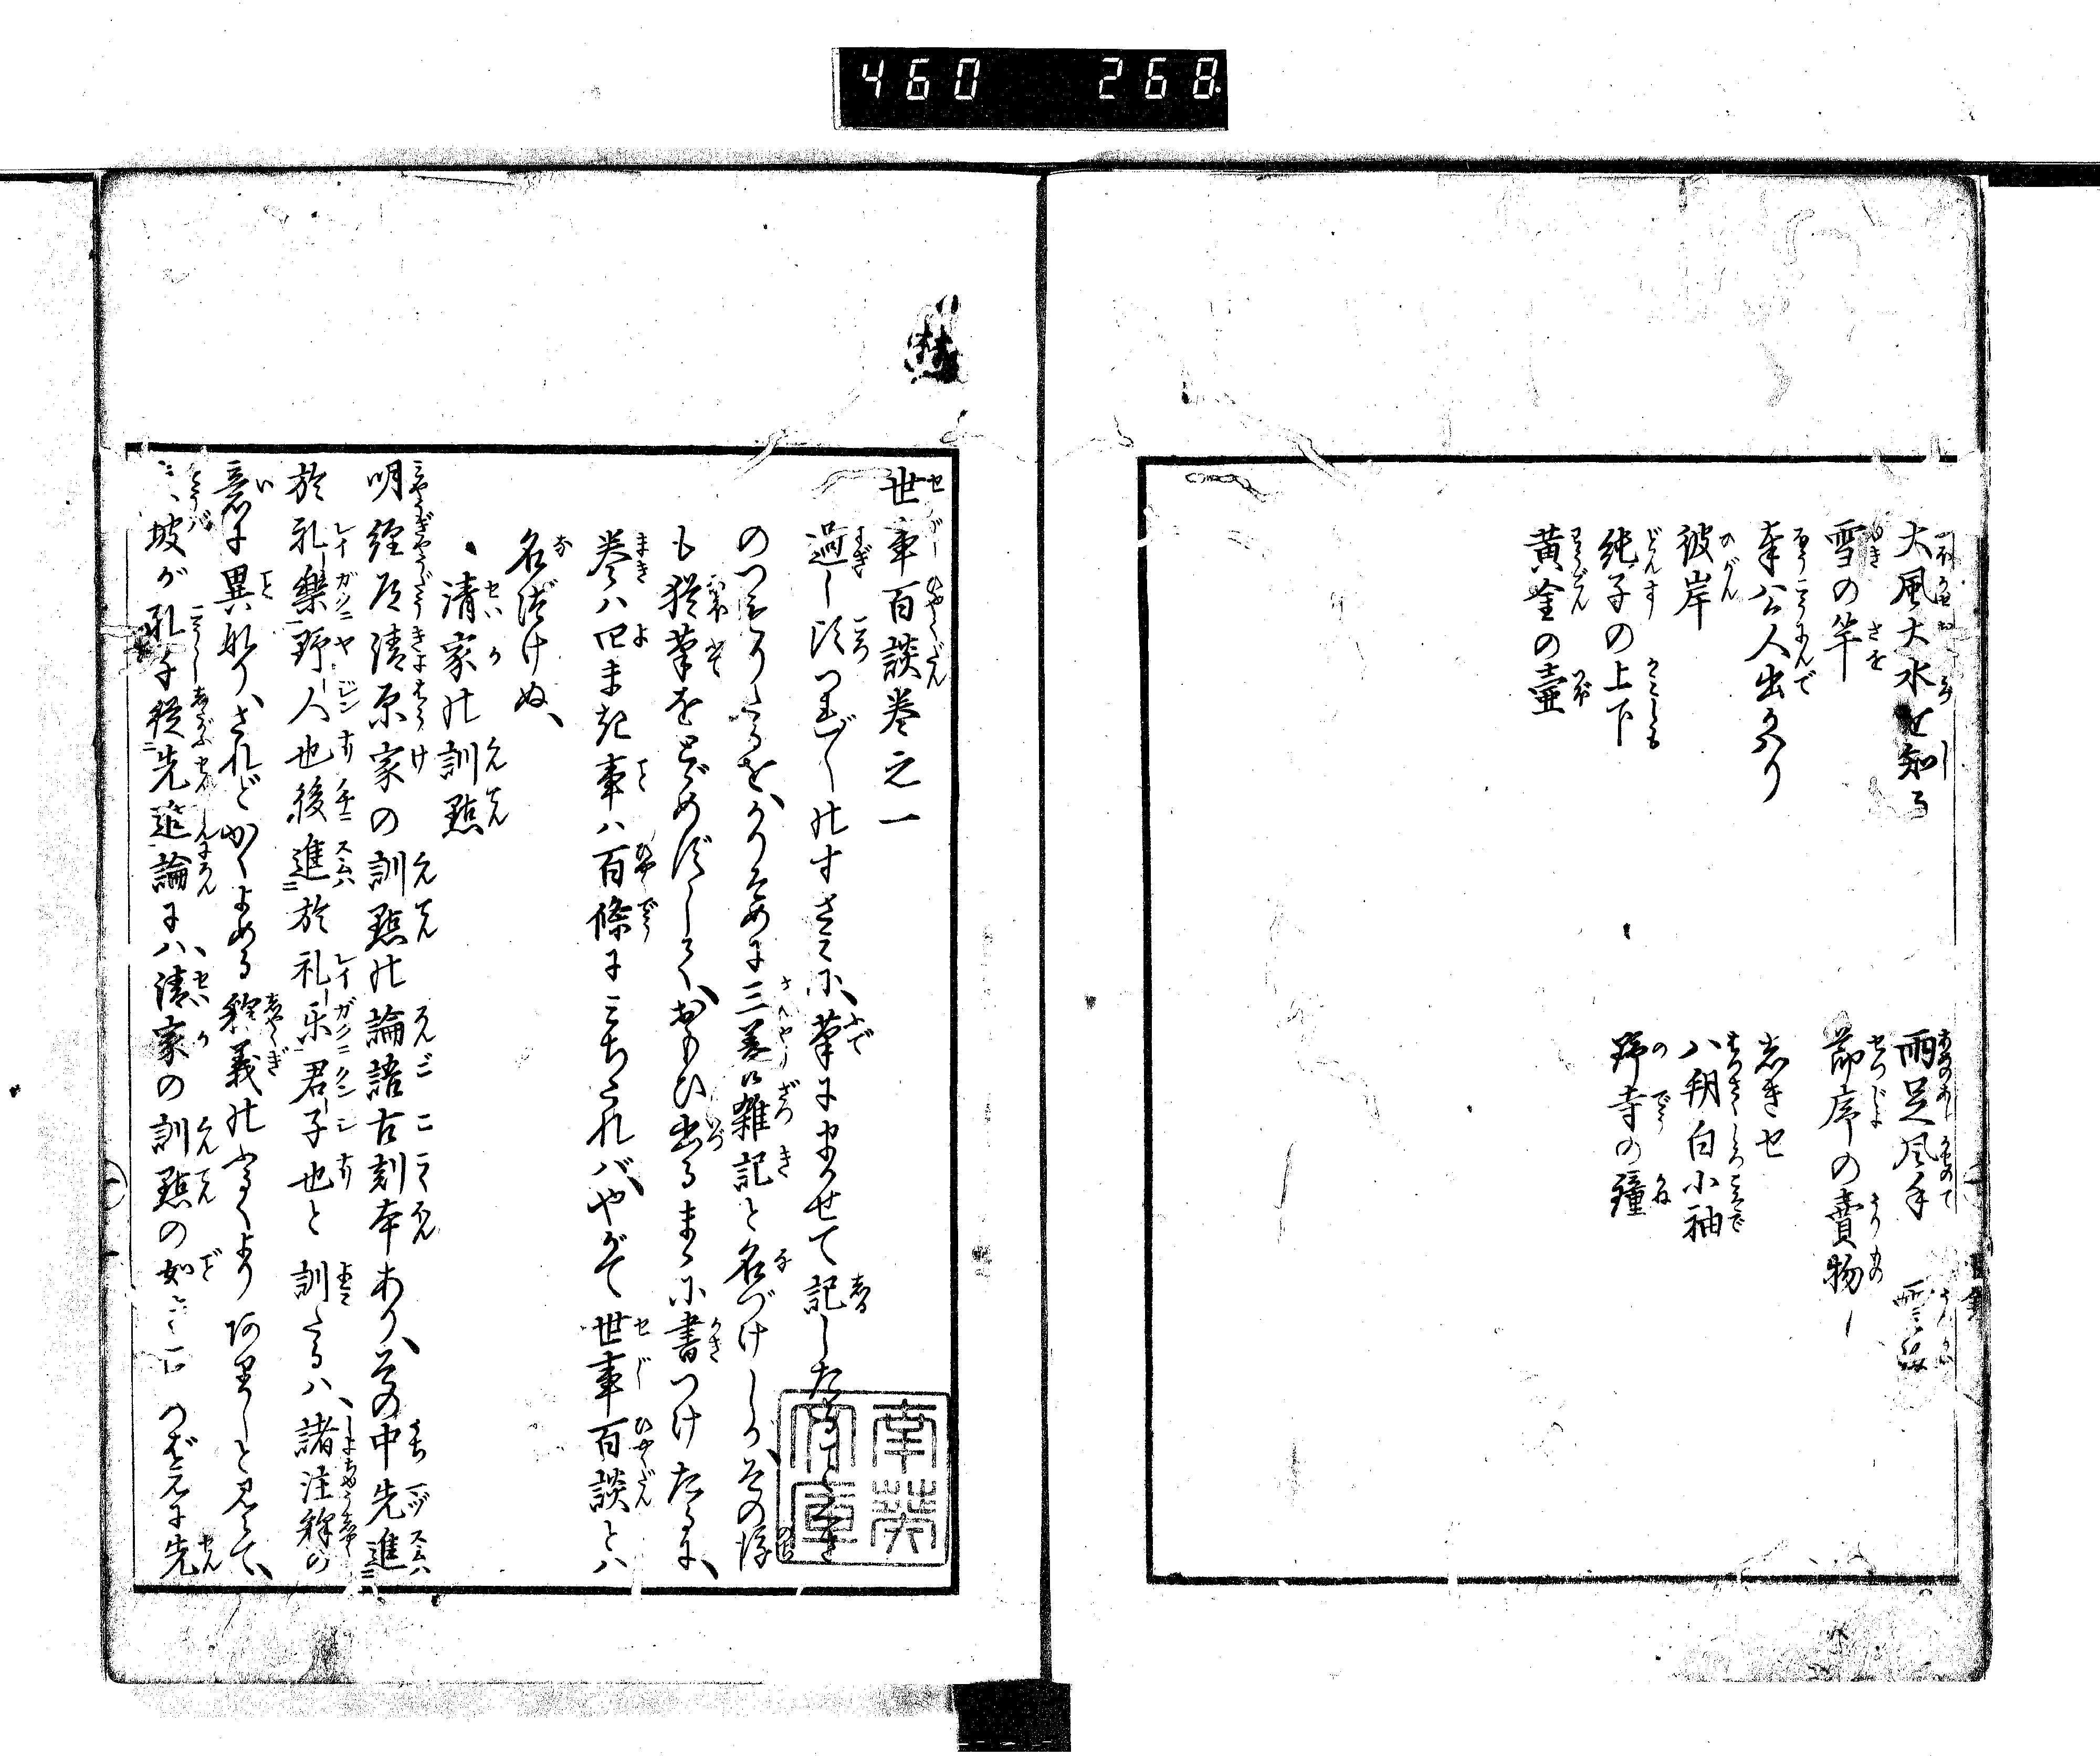 460 268
大風大水を知る
雨足風手
雪の竿
節序の賣物
奉公人出かハり
志きせ
彼岸
八朔白小袖
純子の上下
野寺の鐘
黄金の壷
世事百談巻之一
過し頃つれ〴〵のすさみに、筆にまかせて記したる
のつもりたるを、かりそめに三養雑記と名づけしが、その後
も猶筆をとゞめずして、おもひ出るまゝに書つけたるに、
巻ハ四まき事ハ百條にみちたれバ、やがて世事百談とハ
名づけぬ、
清家の訓點
明経道清原家の訓點の論語古刻本あり、その中先進
於礼樂野人也後進於礼乐君子也と訓たるハ、諸注釋の
意に異れり、されどかくよめる釋義のふるくより ありしと見えて、
坡が孔子従先進論にハ、清家の訓點の如く 先
幸英文庫